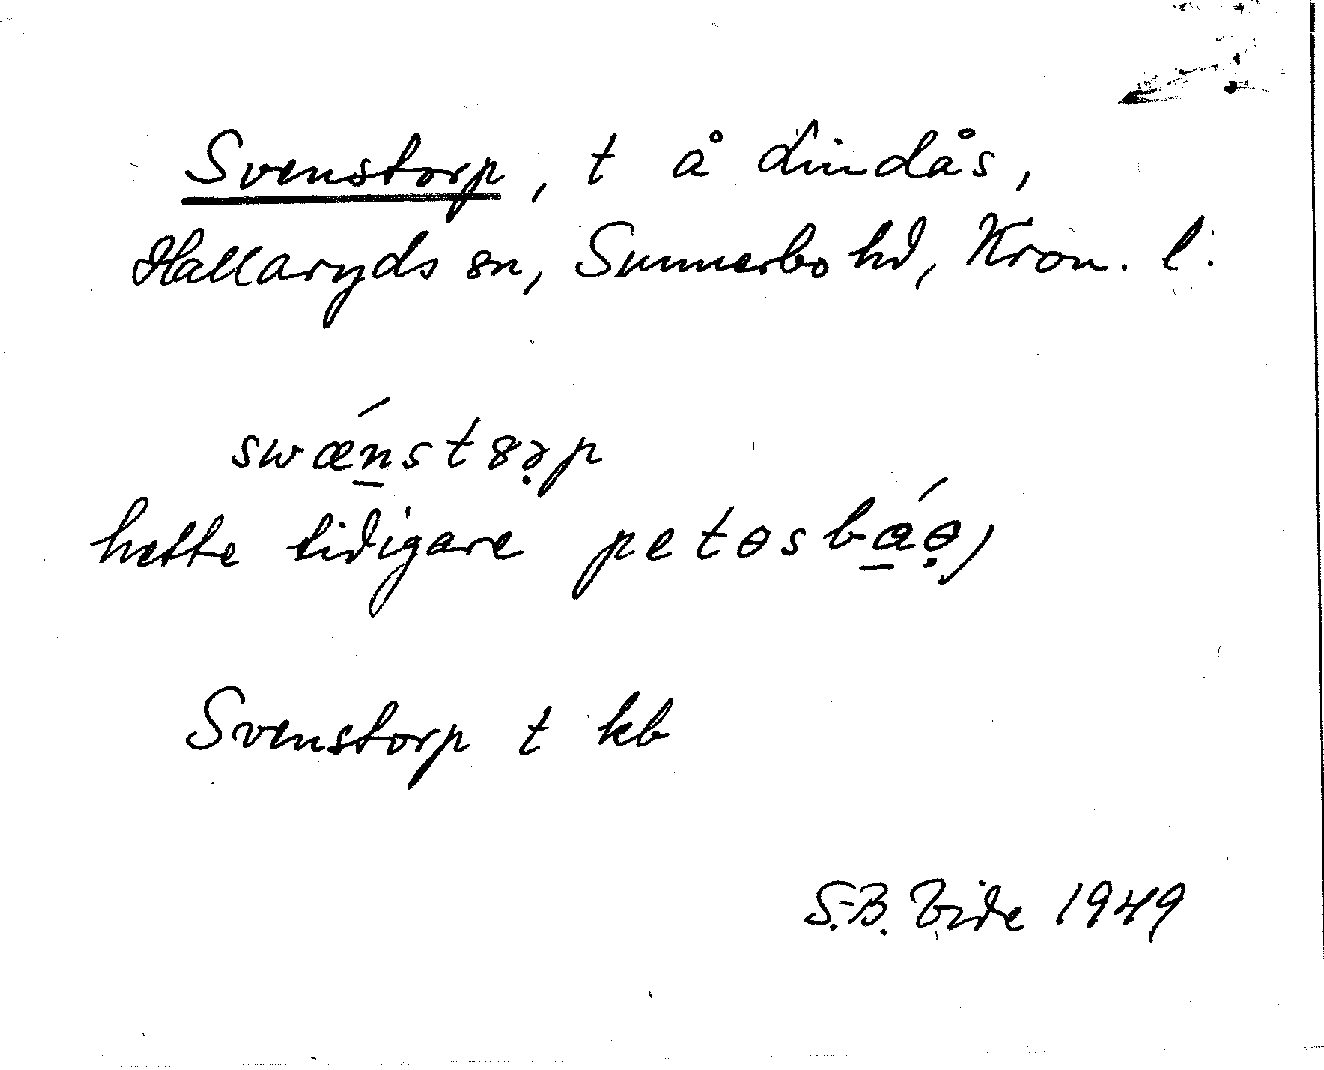 Svenstorp, t å Lindås,
Hallaryds sn, Sunnerbo hd, Kron. l.
swǽn̲st8ə̣p
hette tidigare petɵsbá̲ɵ̣)
Svenstorp t kb
S.-B. Vide 1949